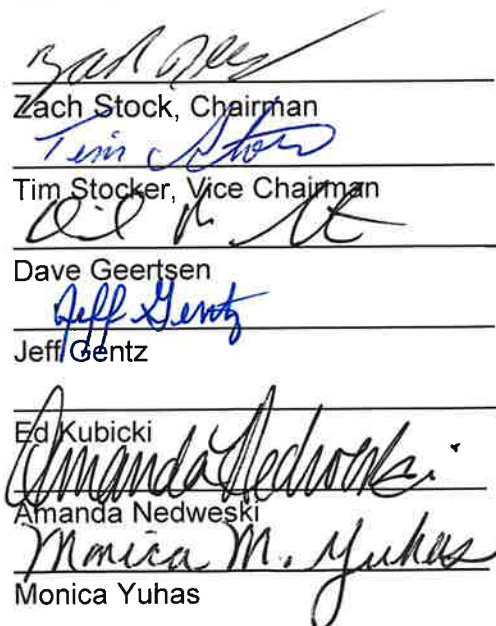 Zach Stock, Chairman
Tim Stocker
Tim Stocker, Vice Chairman
Dave Geertsen
Jeff Gentz
Jeff Gentz
Ed Kubicki
Amanda Nedweski
Amanda Nedweski
Monica M. Yuhas
Monica Yuhas